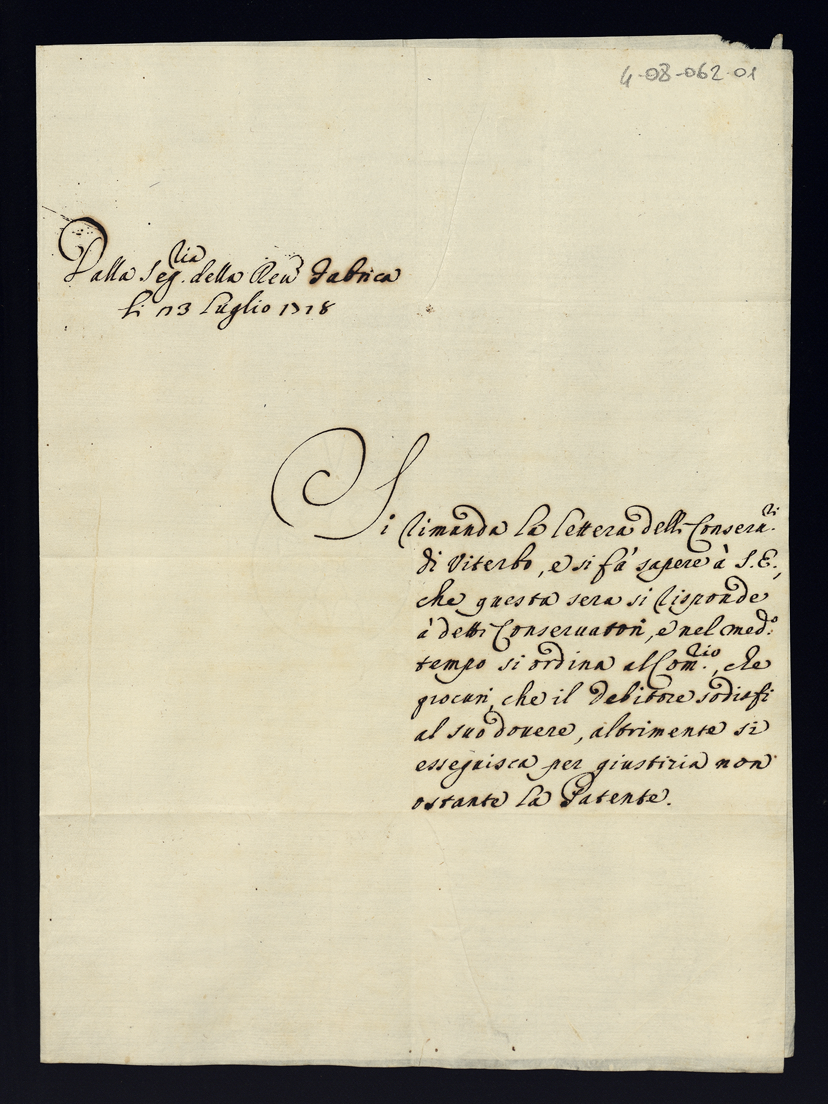 4-08-062-01
Dalla Seg.ria della Reu. Fabrica
li 13 Luglio 1718
Si rimanda la lettera delli Conserua.ri
di Viterbo, e si fà sapere à S.E.,
che questa sera si risponde
à detti Conseruatori, e nel med.o
tempo si ordina al Com.rio, che
procuri, che il debitore sodisfi
al suo douere, altrimente si
esseguisca per giustizia non
ostante la Patente.